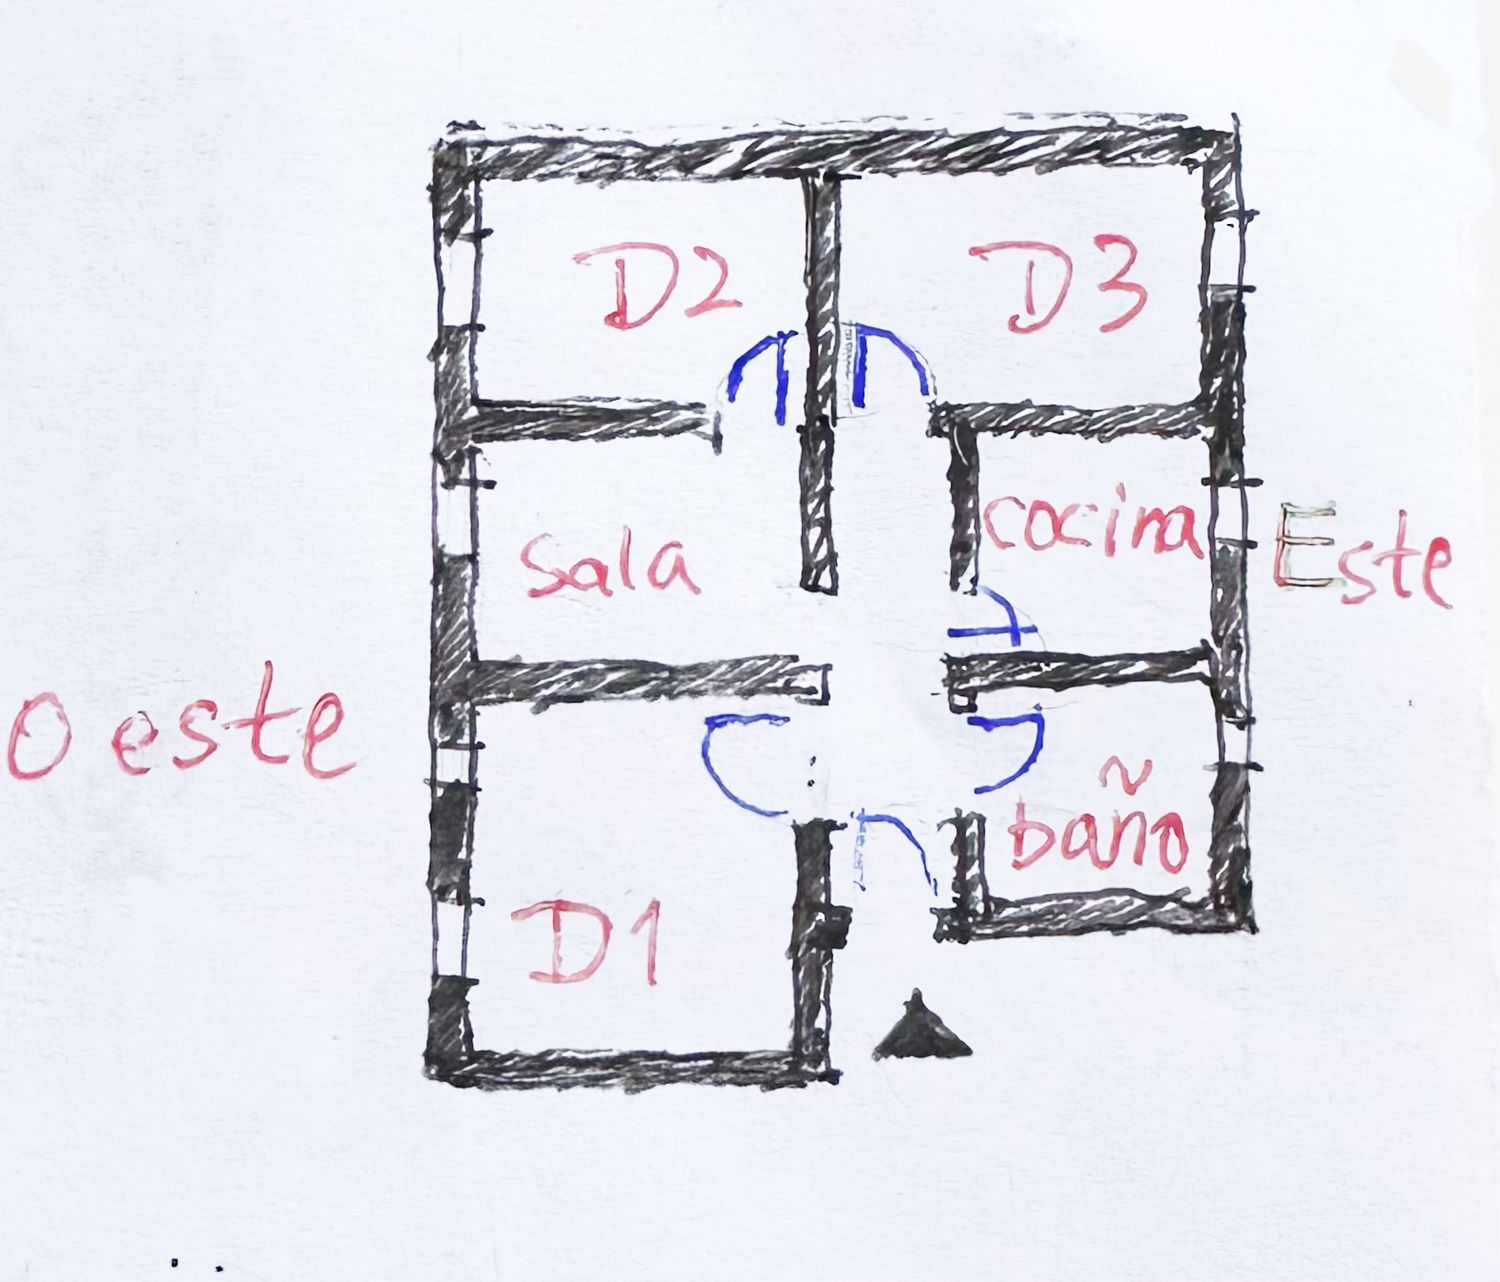 D2
D3
Sala
cocina
Este
Oeste
baño
D1